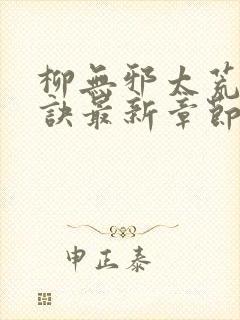 柳無邪太荒
訣最新章節
申正泰